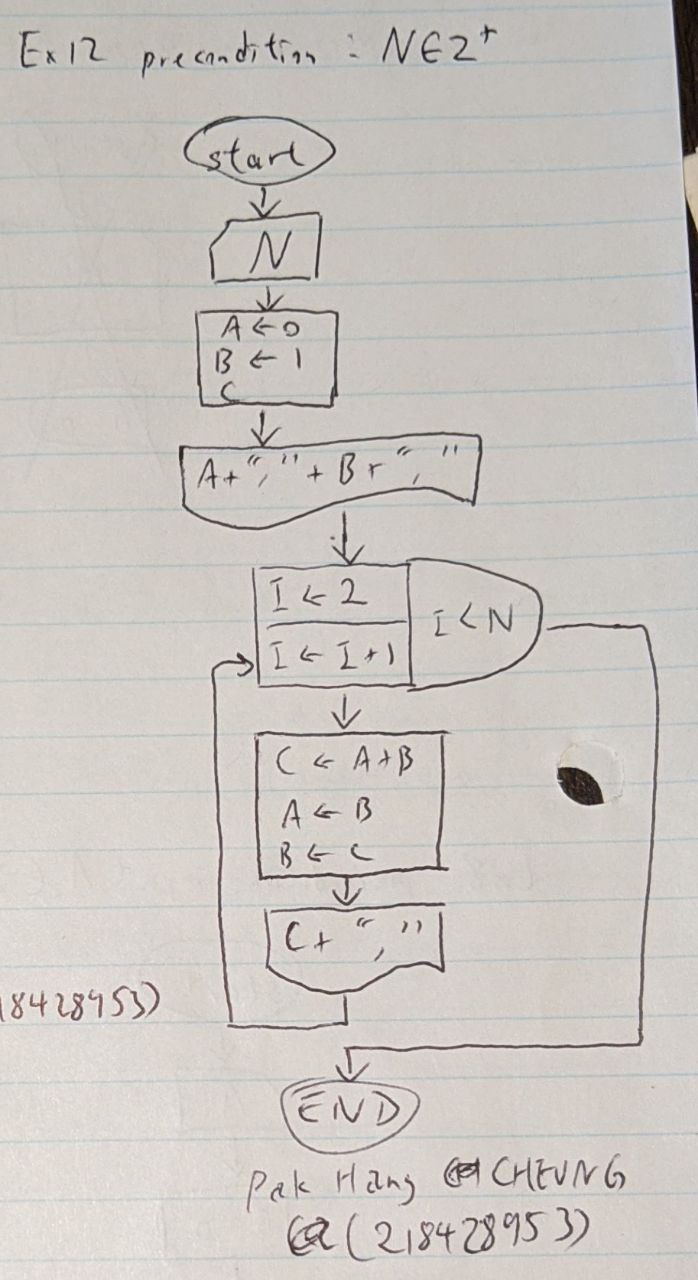 Ex12 precondition : N∈Z⁺
start
N
A ← 0
B ← 1
C
A + "," + B + ", "
I ← 2
I < N
I ← I + 1
C ← A + B
A ← B
B ← C
C + ", "
18428953)
END
Pak Hang CHEUNG
(218428953)